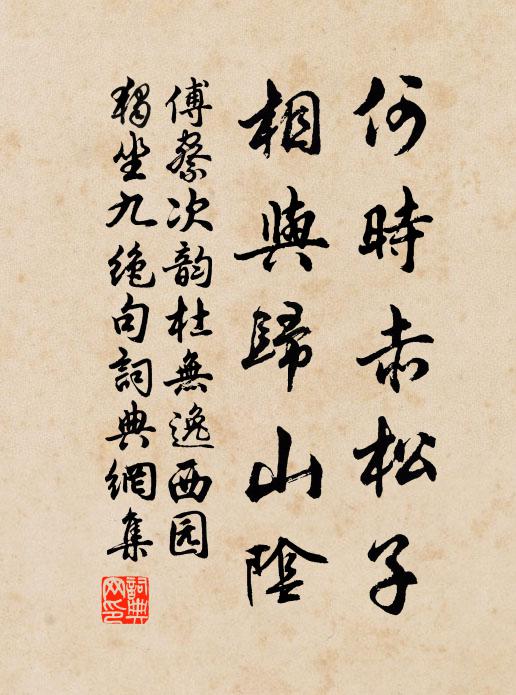 何時赤松子
相與歸山陰
傅察次韵杜無逸西园
獨坐九絶句詞典網集
詞典网印